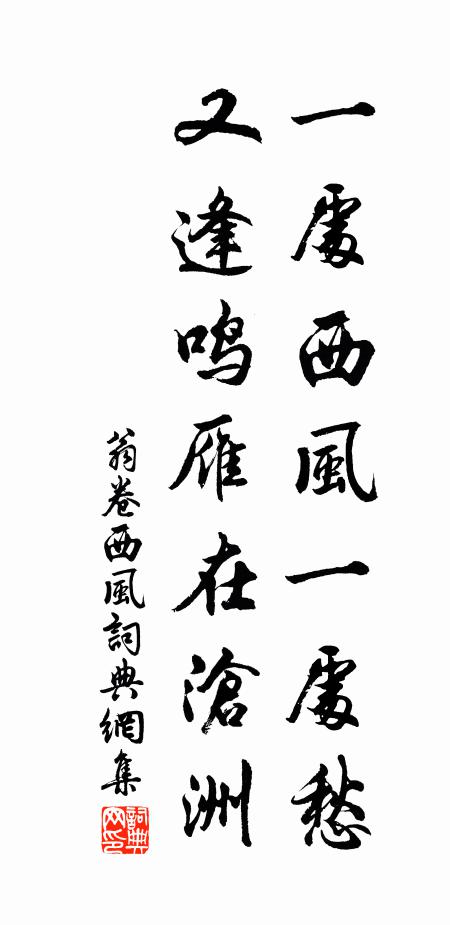 一處西風一處愁
又逢鳴雁在滄洲
翁卷西風詞典網集
詞典網印